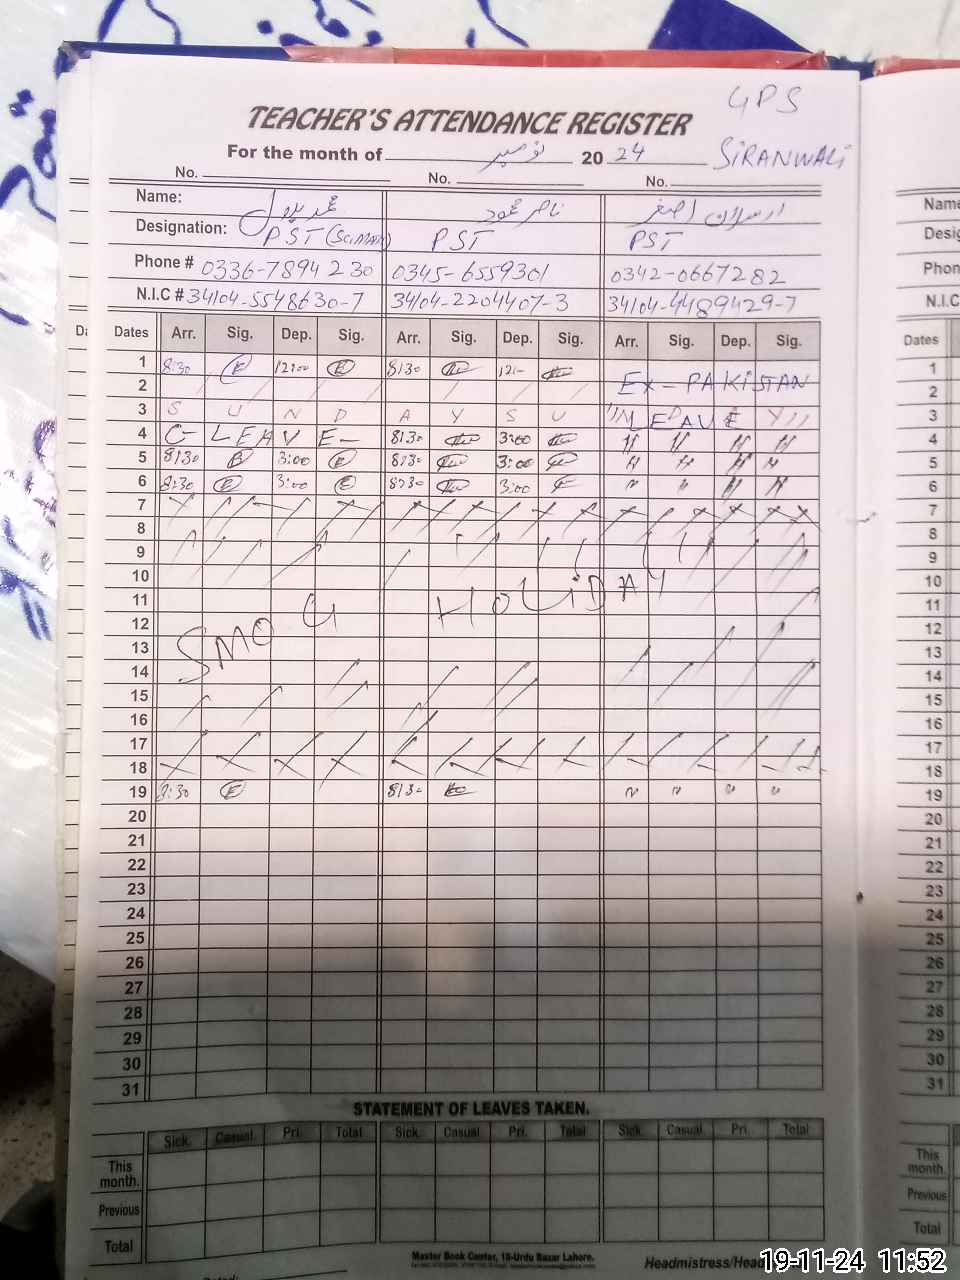 GPS
TEACHER'S ATTENDANCE REGISTER
For the month of نومبر 20 24 SIRANWALI
No. No. No.
Name: محمد ناصر محمود ارسلان اصغر
Designation: PST (Sci Math) PST PST
Phone # 0336-7894230 0345-6559301 0342-0667282
N.I.C # 34104-5548630-7 34104-2204407-3 34104-4489429-7
Dates Arr. Sig. Dep. Sig. Arr. Sig. Dep. Sig. Arr. Sig. Dep. Sig.
1 8:30 12:00 8:30 12:- EX-PAKISTAN
2
3 S U N D A Y S U LEAVE
4 C- LEAVE- 8:30 3:00 〃 〃 〃 〃
5 8:30 3:00 8:30 3:00 〃 〃 〃 〃
6 8:30 3:00 8:30 3:00 〃 〃 〃 〃
7
8
9
10
11
12 SMOG HOLIDAY
13
14
15
16
17
18
19 8:30 8:30 〃 〃 〃 〃
20
21
22
23
24
25
26
27
28
29
30
31
STATEMENT OF LEAVES TAKEN.
Sick. Casual. Pri. Total Sick. Casual Pri. Total Sick. Casual. Pri. Total
This month.
Previous
Total
Master Book Center, 18-Urdu Bazar Lahore.
Headmistress/Head
19-11-24 11:52
Name
Desig
Phon
N.I.C
Dates
1
2
3
4
5
6
7
8
9
10
11
12
13
14
15
16
17
18
19
20
21
22
23
24
25
26
27
28
29
30
31
This month.
Previous
Total